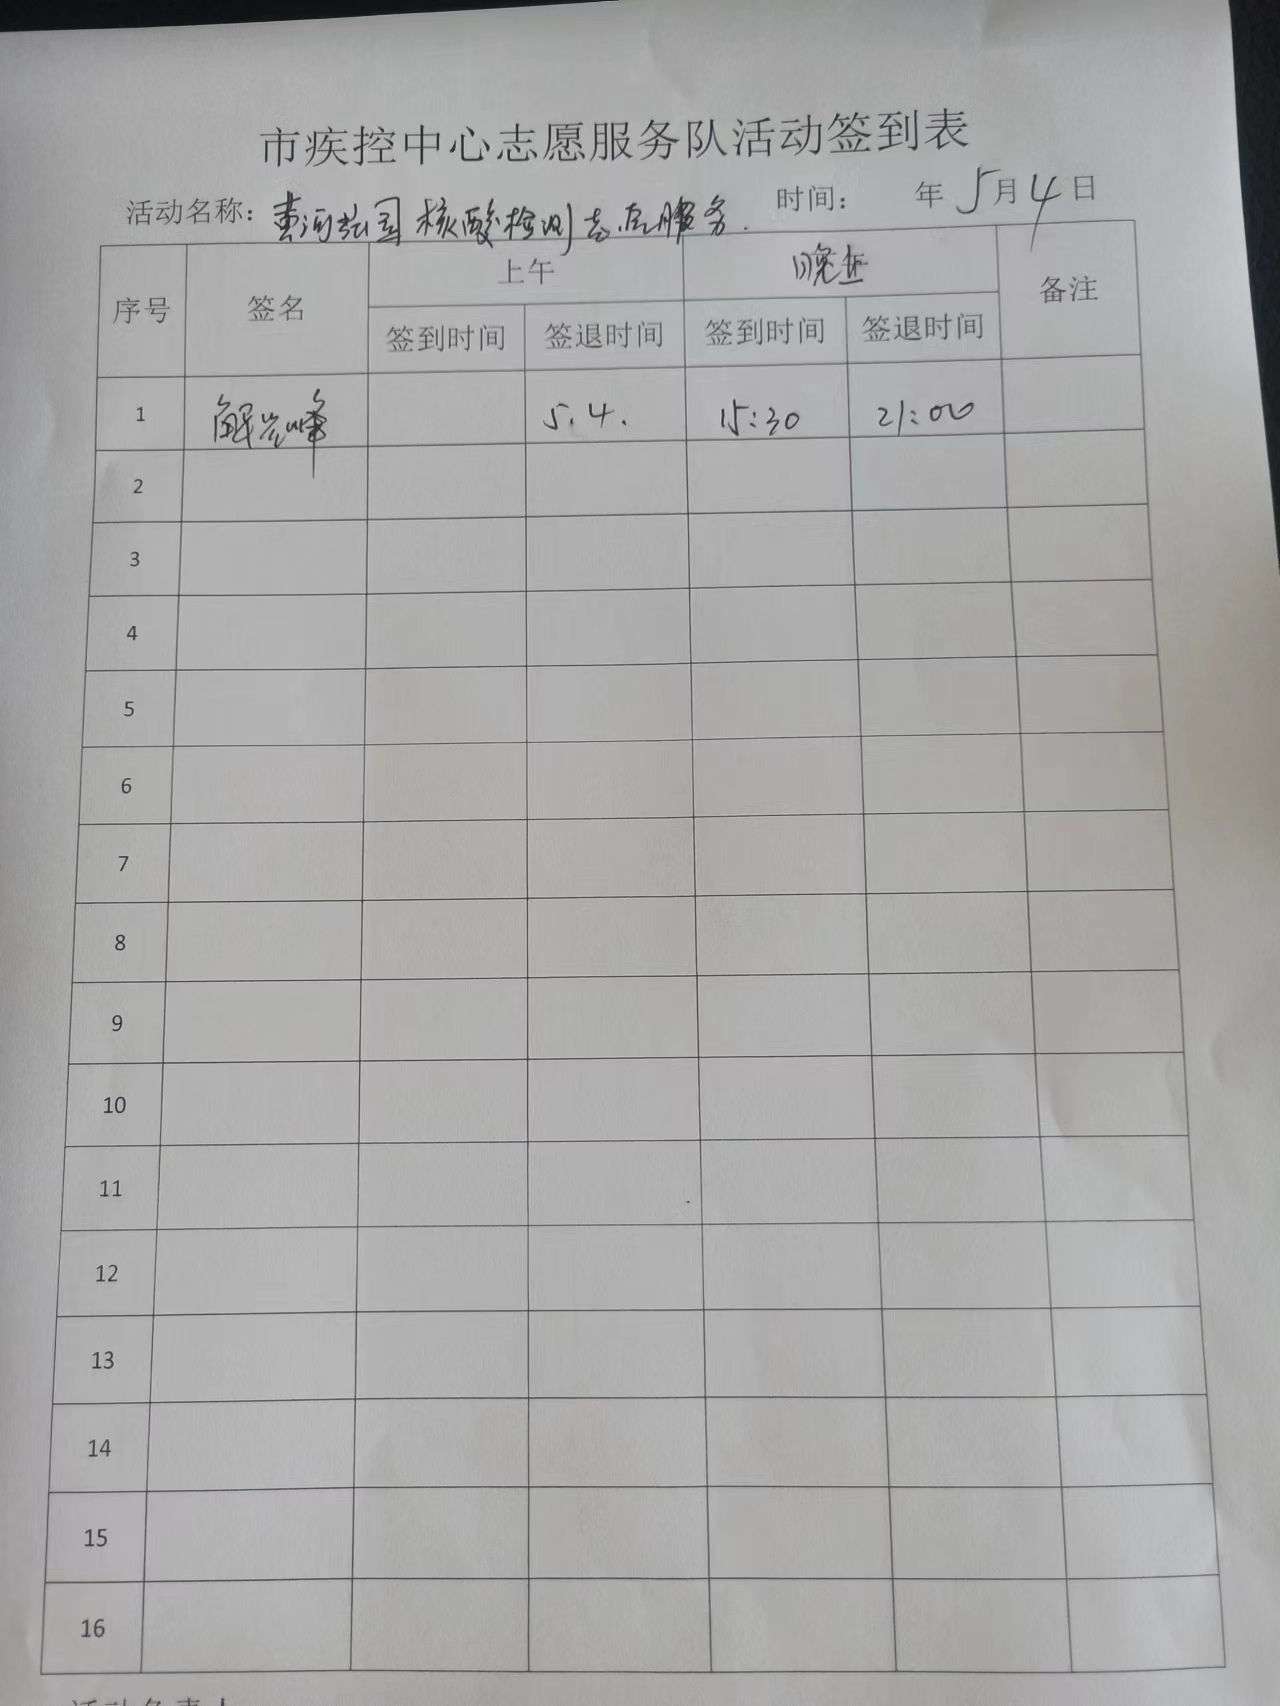 市疾控中心志愿服务队活动签到表
活动名称: 核酸检测志愿服务. 时间: 年 5月4日
序号 签名 上午 晚上 备注
签到时间 签退时间 签到时间 签退时间
1 解 峰 5.4. 15:30 21:00
2
3
4
5
6
7
8
9
10
11
12
13
14
15
16
活动负责人